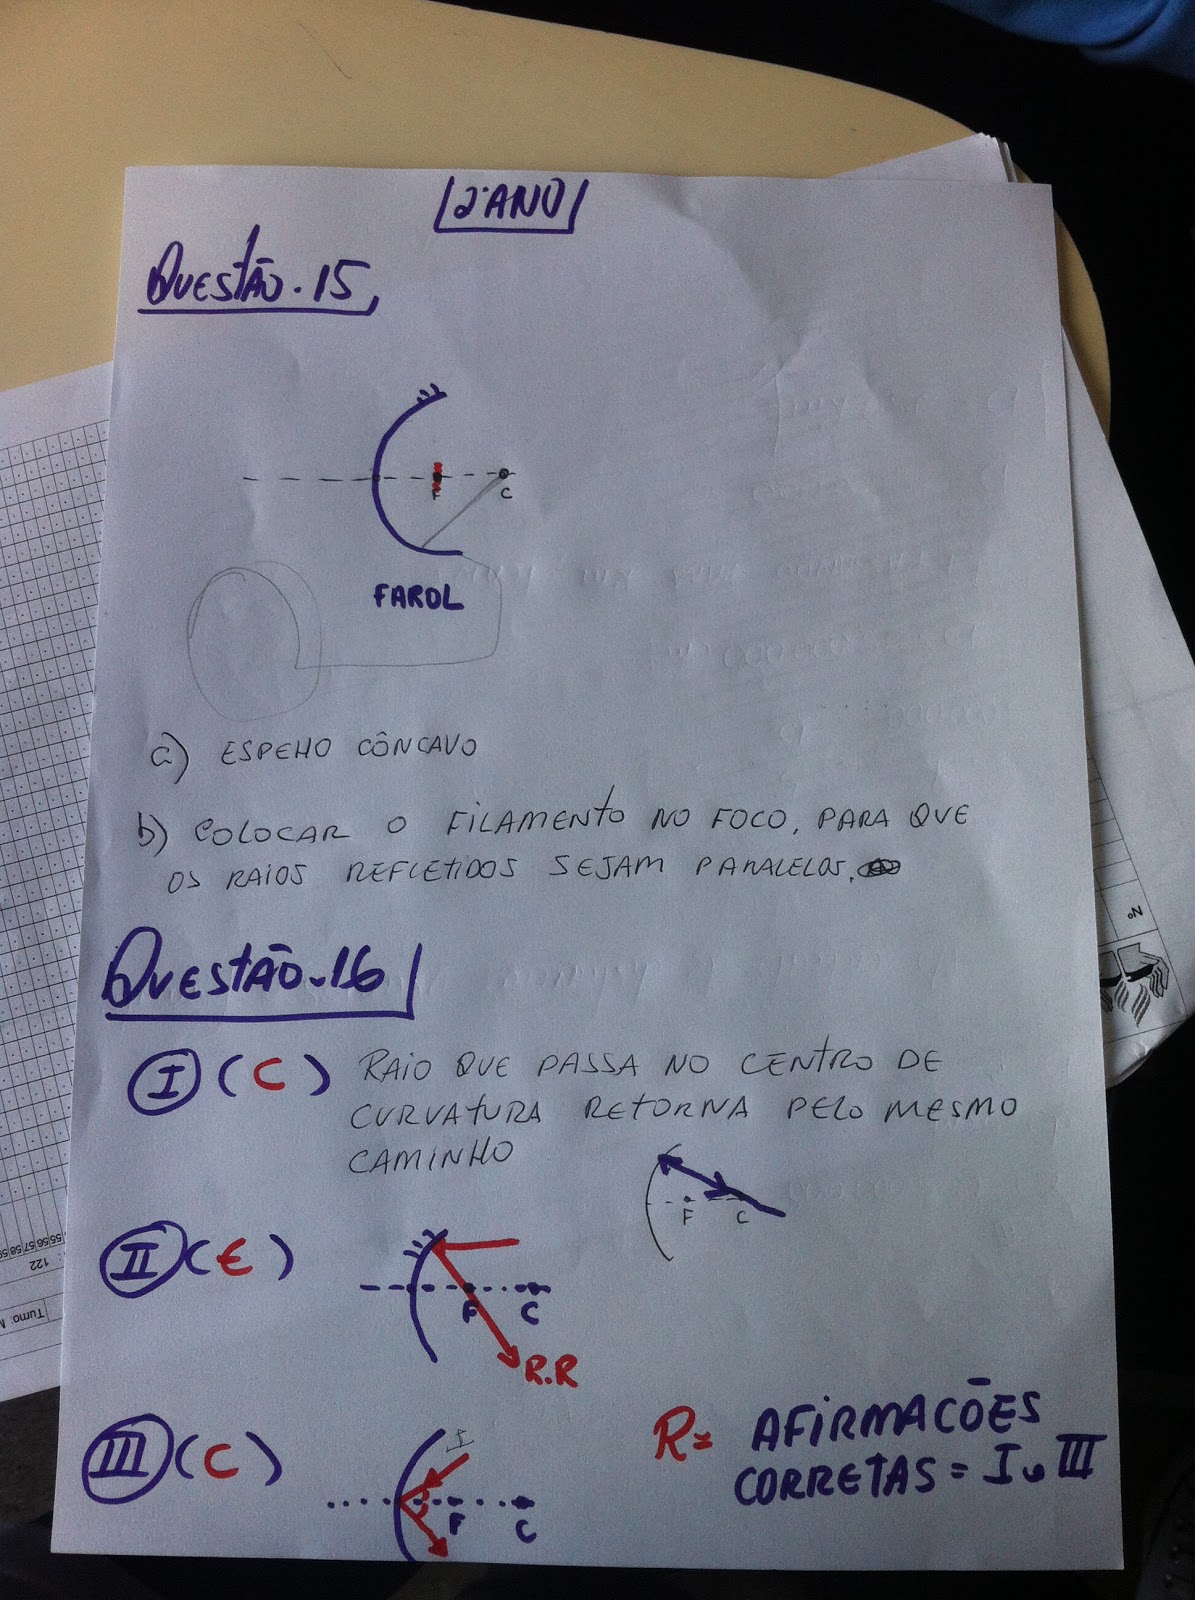 2º ANO
QUESTÃO. 15
F
C
FAROL
a) ESPELHO CÔNCAVO
b) COLOCAR O FILAMENTO NO FOCO, PARA QUE
OS RAIOS REFLETIDOS SEJAM PARALELOS.
QUESTÃO. 16
I (C) RAIO QUE PASSA NO CENTRO DE
CURVATURA RETORNA PELO MESMO
CAMINHO
F C
II (E)
F C
R.R
III (C)
I
F C
R= AFIRMAÇÕES
CORRETAS = I e III
Nº
122
Turno: